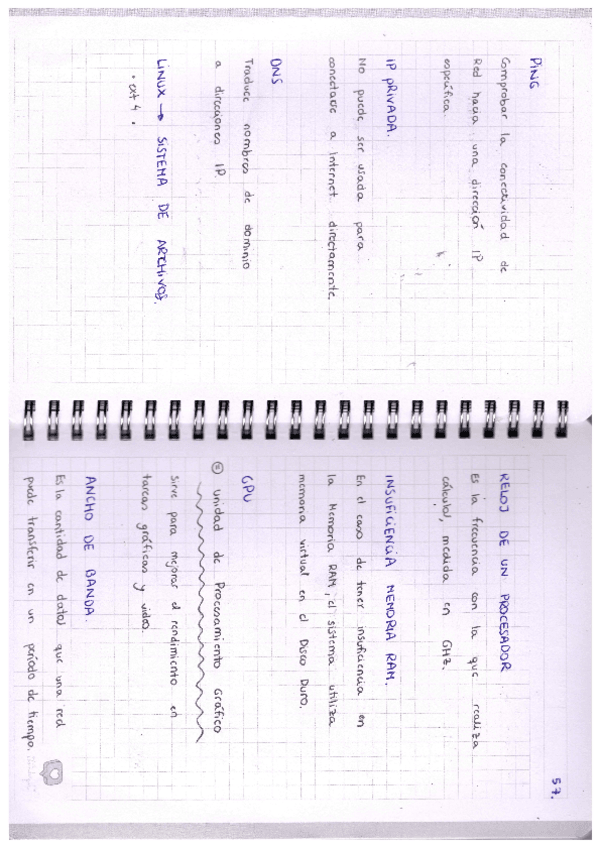 PING
Comprobar la conectividad de
Red hacia una dirección IP
específica.
IP PRIVADA.
No puede ser usada para
conectarse a Internet directamente.
DNS
Traduce nombres de dominio
a direcciones IP.
LINUX → SISTEMA DE ARCHIVOS.
• ext 4 .
57.
RELOJ DE UN PROCESADOR
Es la frecuencia con la que realiza
cálculos, medida en GHz.
INSUFICIENCIA MEMORIA RAM.
En el caso de tener insuficiencia en
la Memoria RAM, el sistema utiliza
memoria virtual en el Disco Duro.
GPU
= Unidad de Procesamiento Gráfico
sirve para mejorar el rendimiento en
tareas gráficas y video.
ANCHO DE BANDA.
Es la cantidad de datos que una red
puede transferir en un período de tiempo.